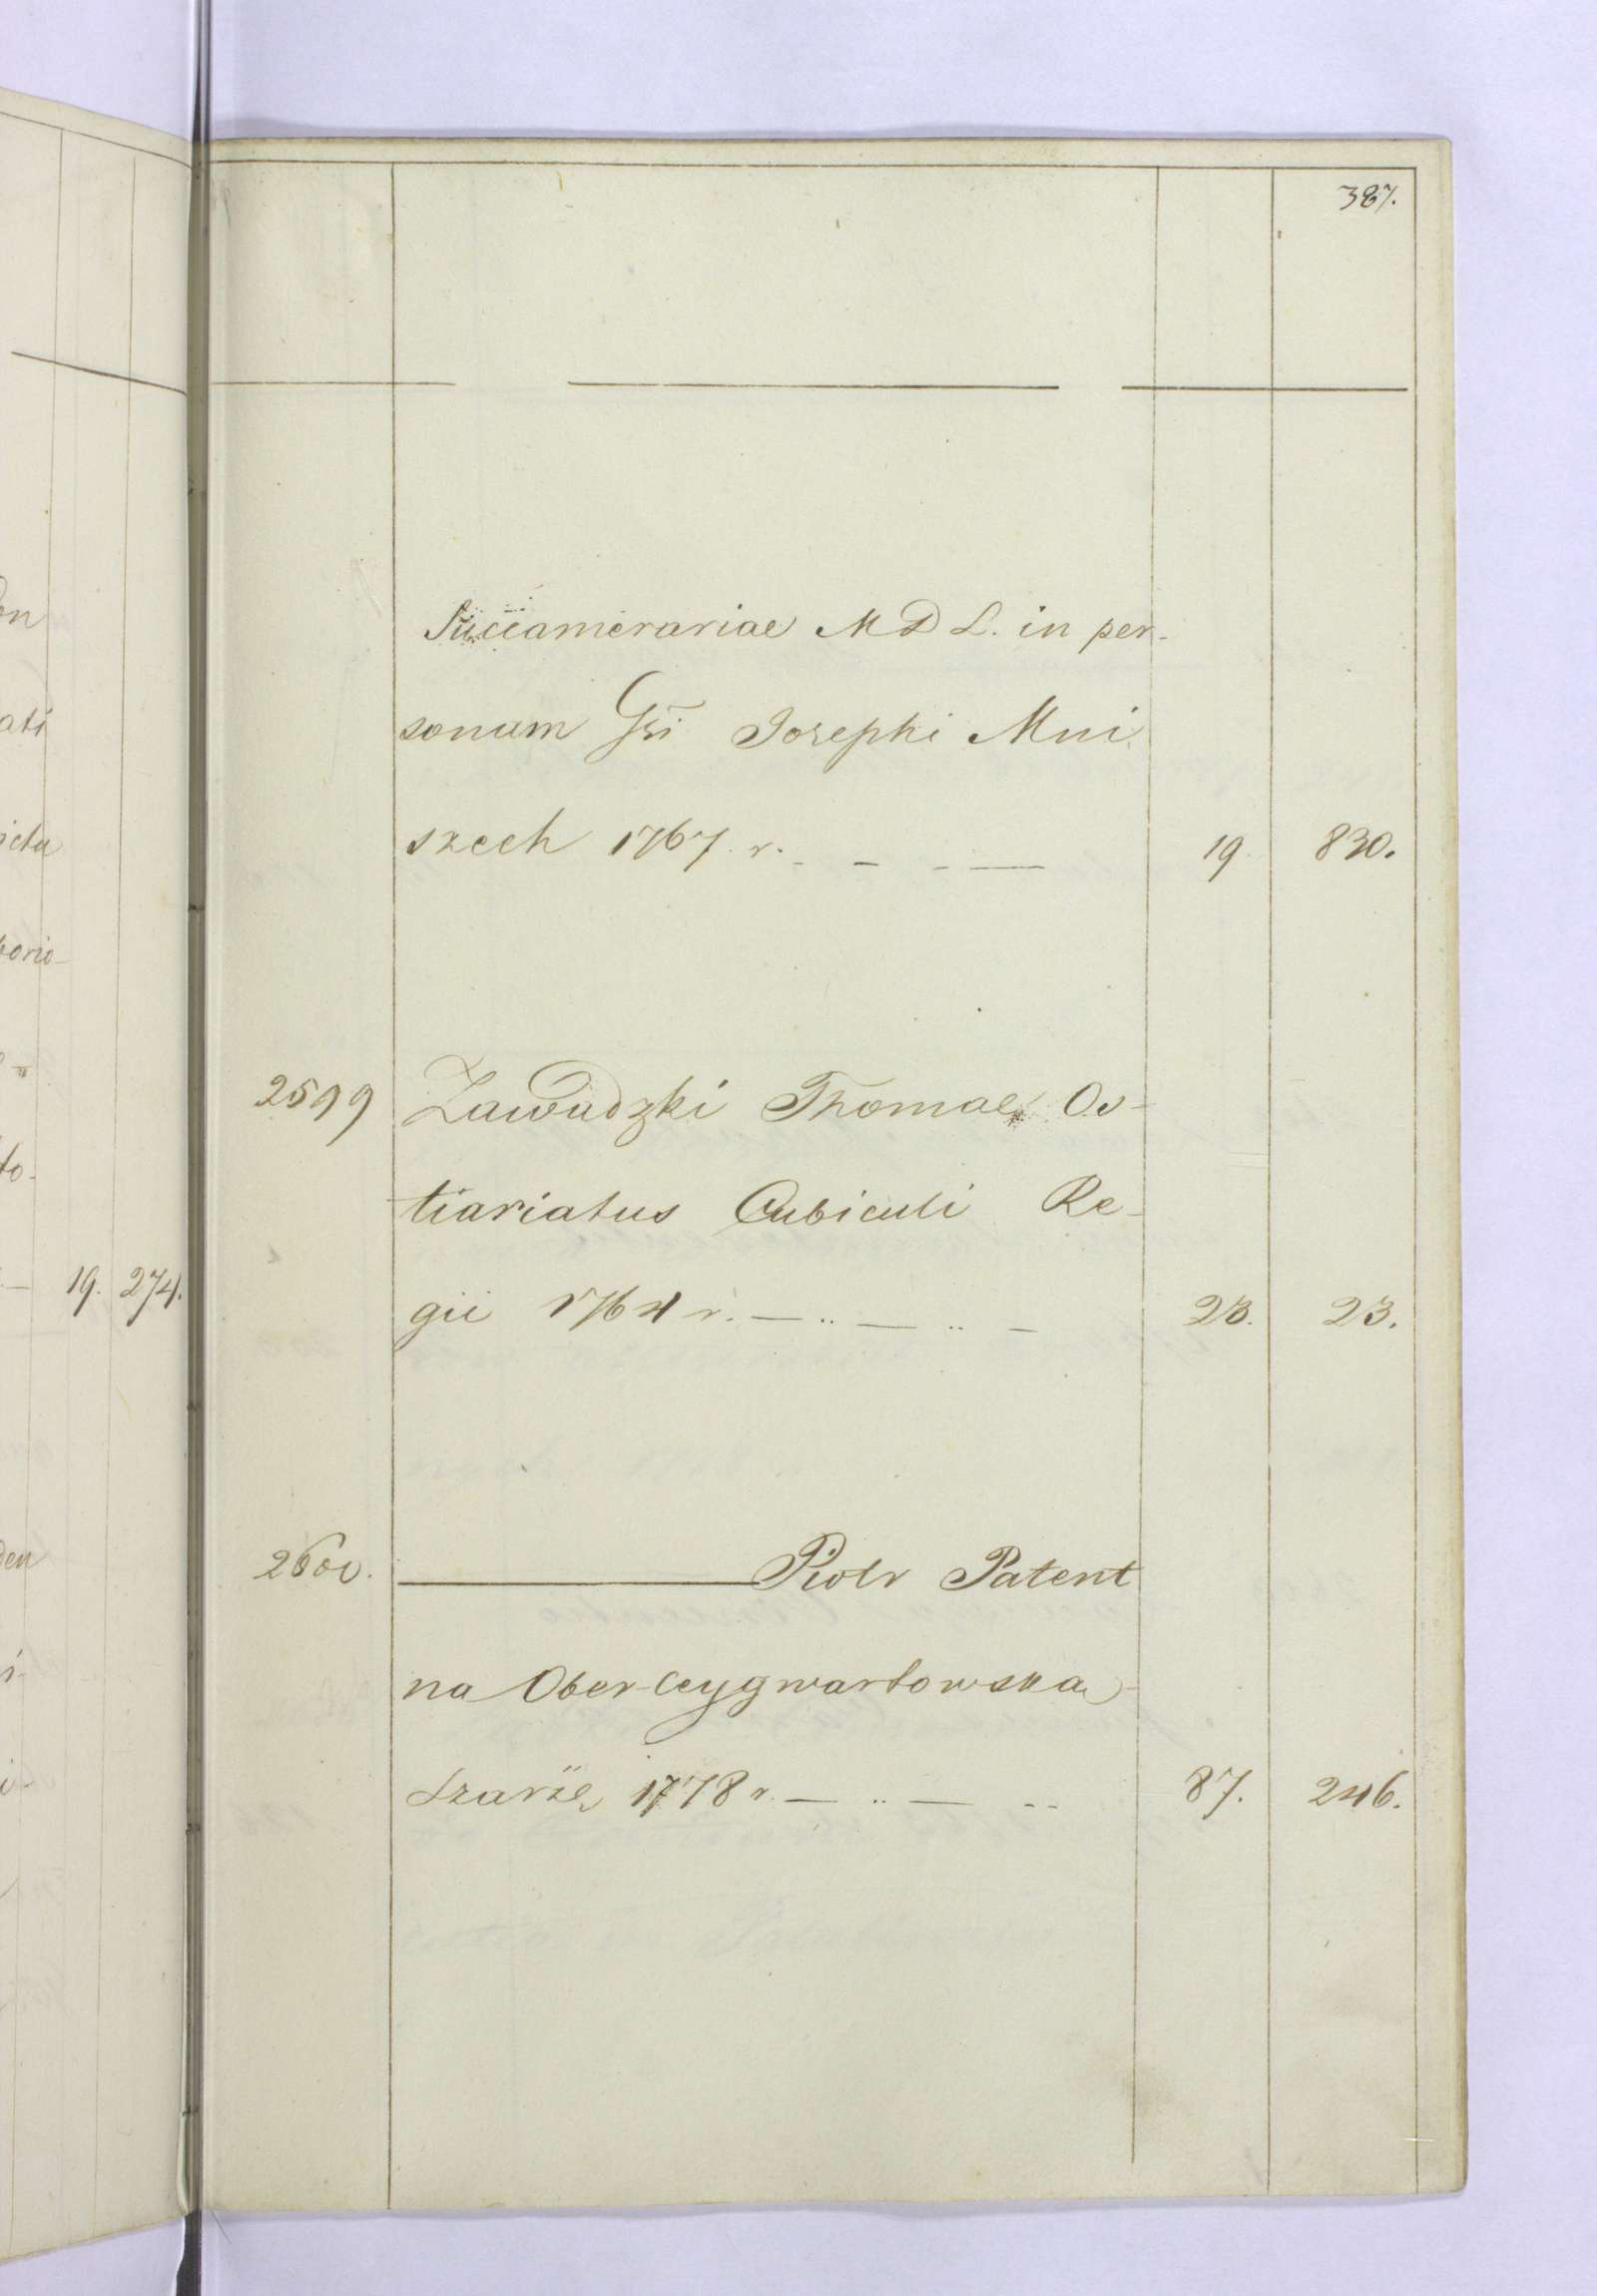 387.
Succamerariae M D L. in per-
sonam Gsi Josephi Mni
szech 1767 r. - - - — 19 830.
2599 Zawadzki Thomae Os-
tiariatus Cubiculi Re-
gii 1764 r. — .. — .. — 23. 23.
2600. ——— Piotr Patent
na Ober-Ceygwartowską
szarże 1778 r. — .. — .. 87. 246.
19. 274.